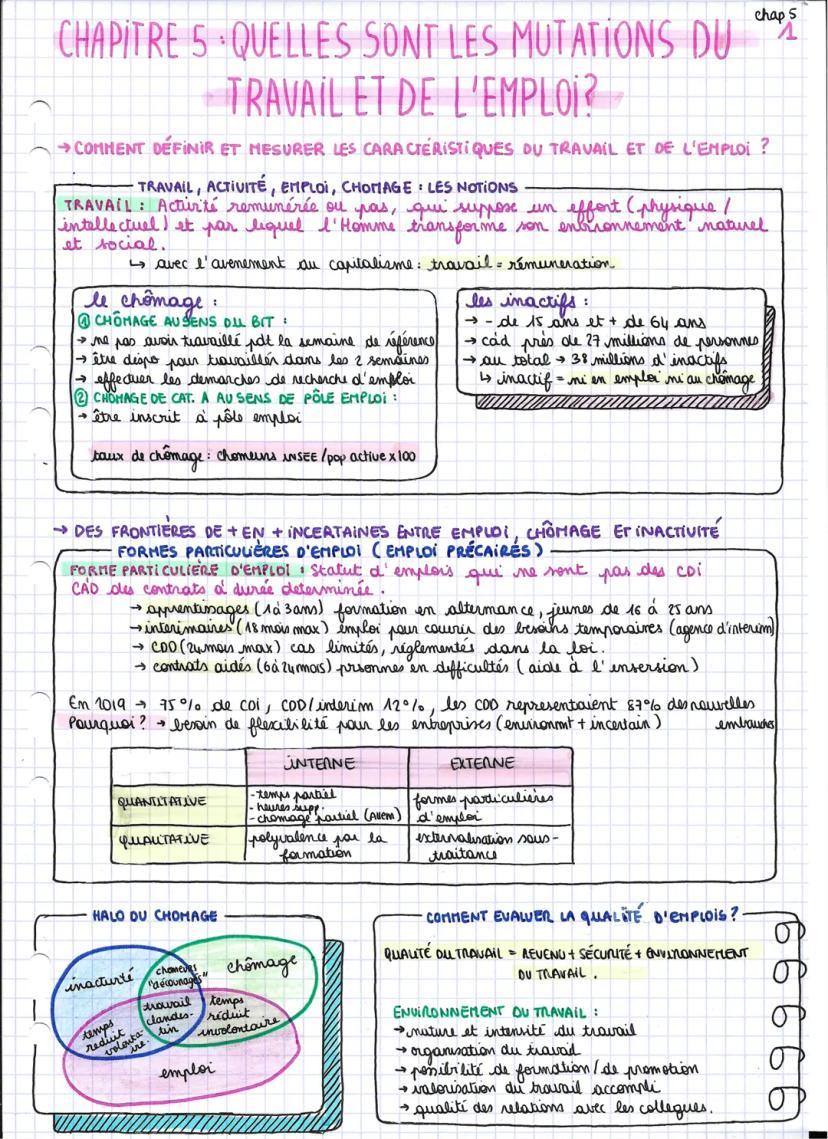 chap 5
1
CHAPITRE 5 : QUELLES SONT LES MUTATIONS DU
TRAVAIL ET DE L'EMPLOI?
→ COMMENT DÉFINIR ET MESURER LES CARACTÉRISTIQUES DU TRAVAIL ET DE L'EMPLOI ?
TRAVAIL, ACTIVITÉ, EMPLOI, CHOMAGE : LES NOTIONS
TRAVAIL : Activité remunérée ou pas, qui suppose un effort (physique /
intellectuel) et par lequel l'Homme transforme son environnement naturel
et social.
↳ avec l'avenement au capitalisme : travail = rémuneration
le chômage :
① CHÔMAGE AU SENS DU BIT :
→ ne pas avoir travaillé pdt la semaine de référence
→ être dispo pour travailler dans les 2 semaines
→ effectuer les demarches de recherche d'emploi
② CHOMAGE DE CAT. A AU SENS DE PÔLE EMPLOI :
→ être inscrit à pôle emploi
taux de chômage : chomeurs INSEE / pop active x 100
les inactifs :
→ - de 15 ans et + de 64 ans
→ càd près de 27 millions de personnes
→ au total → 38 millions d'inactifs
↳ inactif = ni en emploi ni au chômage
→ DES FRONTIÈRES DE + EN + INCERTAINES ENTRE EMPLOI, CHÔMAGE ET INACTIVITÉ
FORMES PARTICULIÈRES D'EMPLOI (EMPLOI PRÉCAIRES)
FORME PARTICULIÈRE D'EMPLOI : Statut d'emplois qui ne sont pas des CDI
CAD des contrats à durée determinée.
→ apprentissages (1 à 3 ans) formation en alternance, jeunes de 16 à 25 ans
→ interimaires (18 mois max) emploi pour couvrir des besoins temporaires (agence d'interim)
→ CDD (24 mois max) cas limités, réglementés dans la loi.
→ contrats aidés (6 à 24 mois) personnes en difficultés (aide à l'insersion)
En 2019 → 75% de CDI, CDD/interim 12%, les CDD representaient 87% des nouvelles
embauches
Pourquoi? → besoin de flexibilité pour les entreprises (environmt + incertain)
INTERNE EXTERNE
QUANTITATIVE
- temps partiel
- heures supp.
- chomage partiel (Allem)
formes particulières
d'emploi
QUALITATIVE
polyvalence par la
formation
externalisation sous-
traitance
HALO DU CHOMAGE
inactivité
chomeurs
"découragés"
chômage
travail
clandes-
tin
temps
réduit
involontaire
temps
reduit
volonta-
ire.
emploi
COMMENT EVALUER LA QUALITÉ D'EMPLOIS ?
QUALITÉ DU TRAVAIL = REVENU + SÉCURITÉ + ENVIRONNEMENT
DU TRAVAIL.
ENVIRONNEMENT DU TRAVAIL :
→ nature et intensité du travail
→ organisation du travail
→ possibilité de formation / de promotion
→ valorisation du travail accompli
→ qualité des relations avec les collegues.